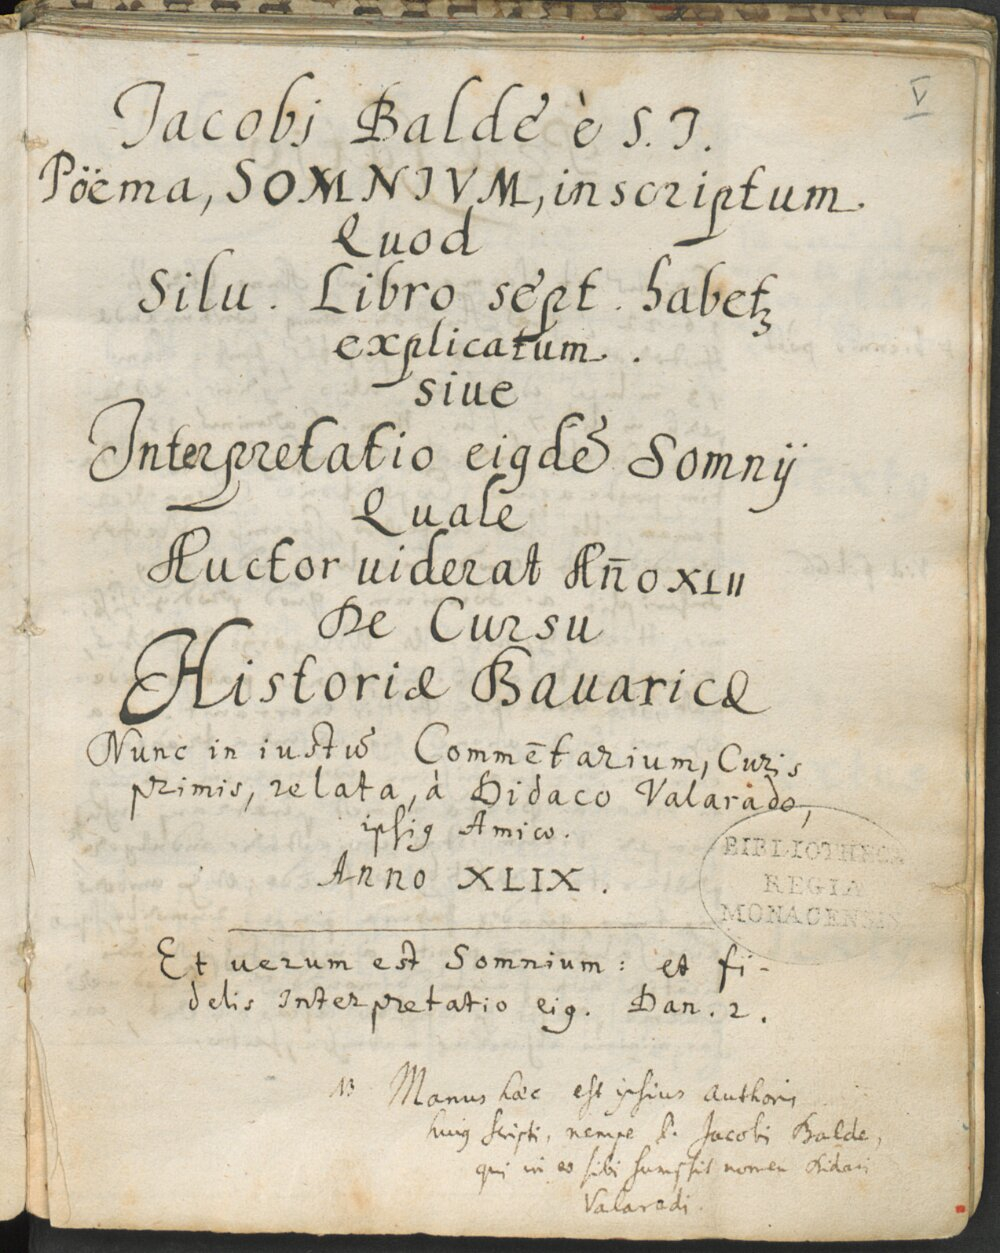 V
Jacobi Balde è S. J.
Poëma, SOMNIVM, inscriptum
Quod
Silu. Libro sept. habetꝫ
explicatum.
siue
Interpretatio eiꝰdē Somnÿ
Quale
Auctor uiderat Añ̄o XLII
De Cursu
Historiæ Bauaricæ
Nunc in iustū Commētarium, Curis
primis, relata, à Didaco Valarado,
ipsiꝰ Amico.
Anno XLIX.
BIBLIOTHECA
REGIA
MONACENSIS
Et uerum est Somnium: et fi-
delis Interpretatio eiꝰ. Dan. 2.
NB Manus hæc est ipsius authoris
huiꝰ scripti, nempe P. Jacobi Balde,
qui in eo sibi sumpsit nomen Didaci
Valaradi.